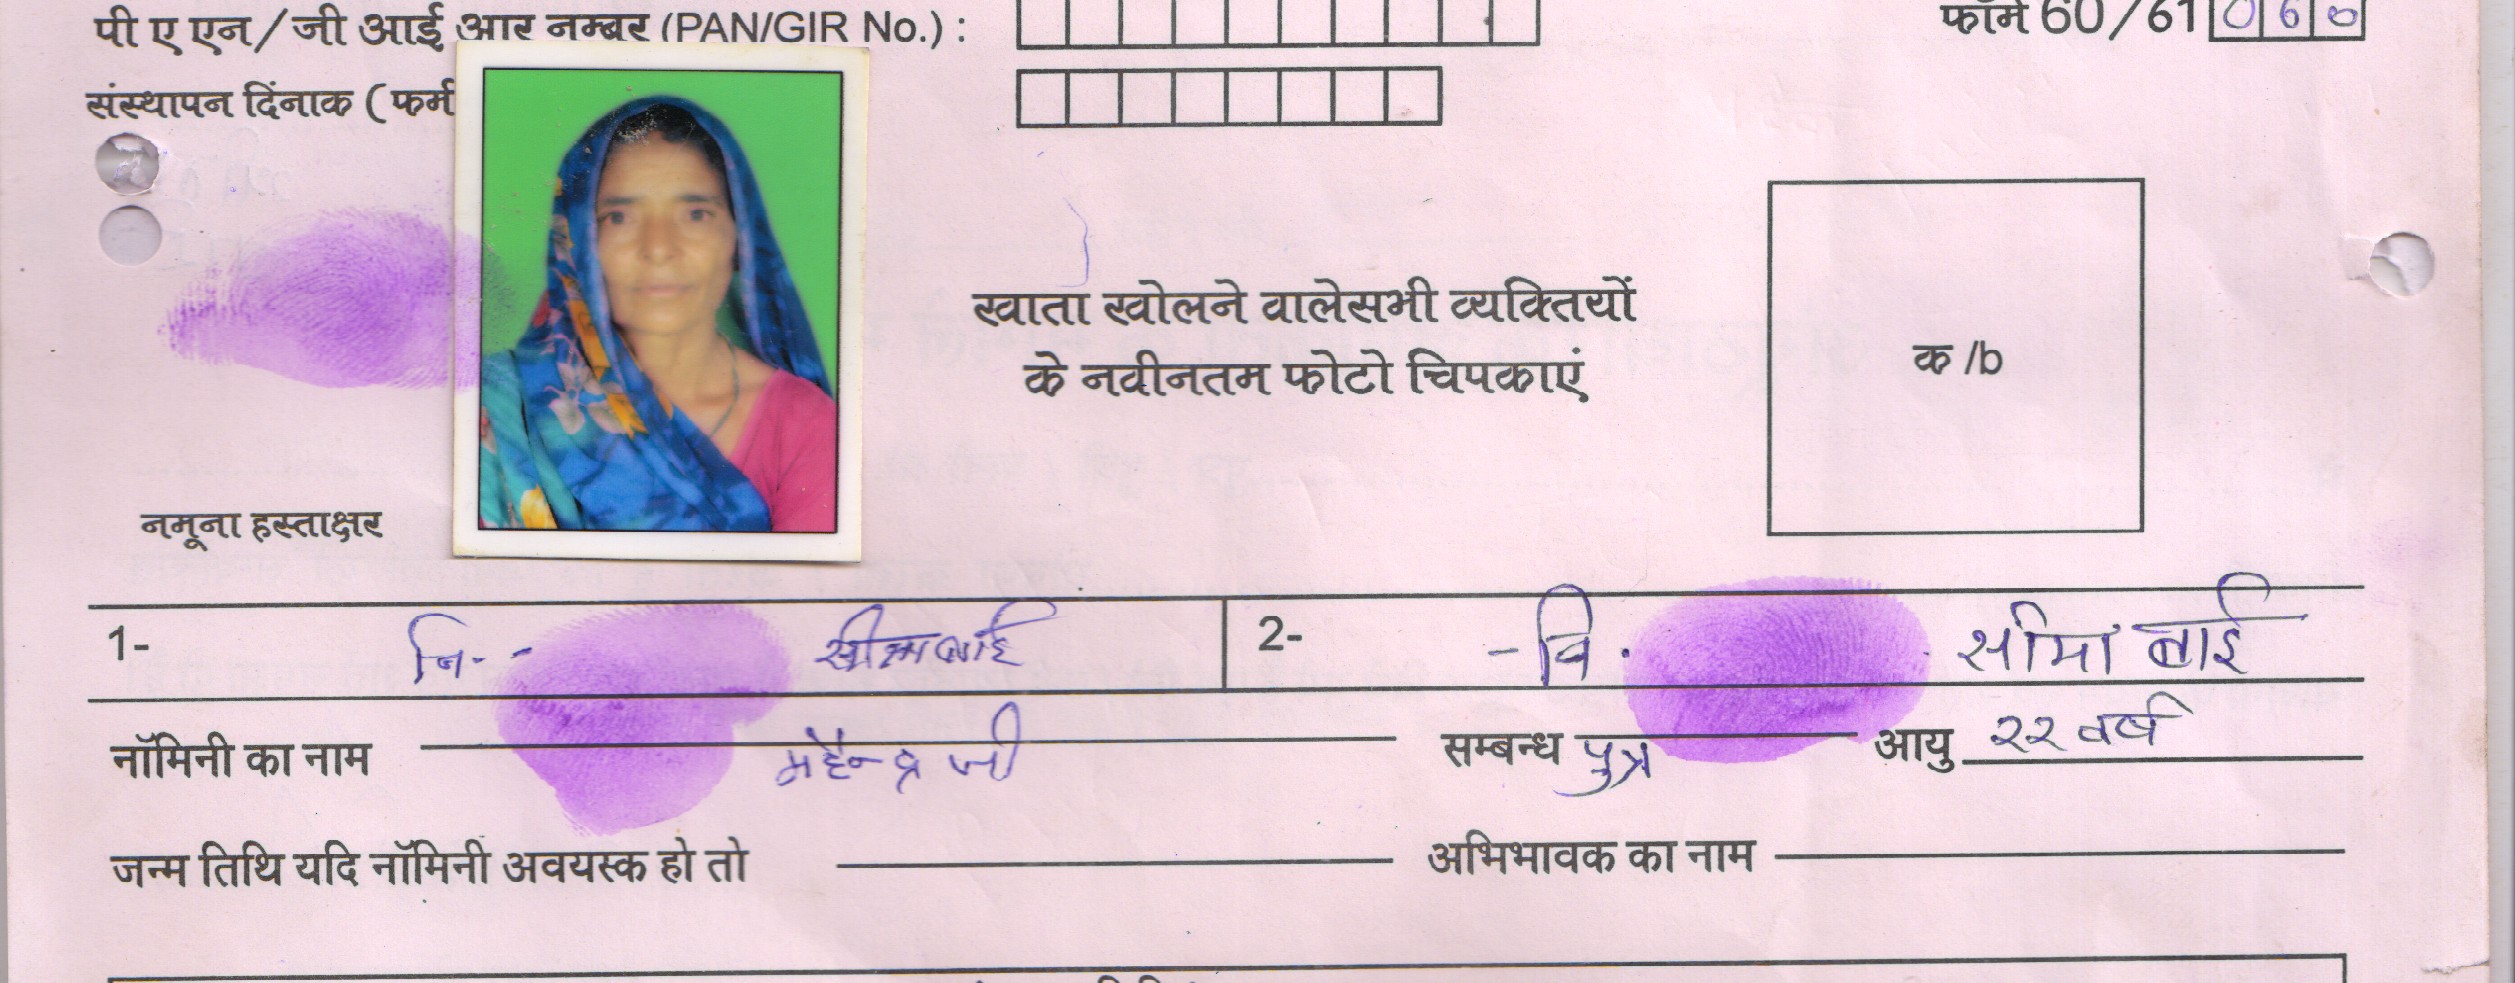 पी ए एन/जी आई आर नम्बर (PAN/GIR No.) : फॉर्म 60/61 060
संस्थापन दिंनाक (फर्म
खाता खोलने वालेसभी व्यक्तियों
के नवीनतम फोटो चिपकाएं
क /b
नमूना हस्ताक्षर
1- नि-- सीमा बाई 2- -नि. सीमा बाई
नॉमिनी का नाम महेन्द्र जी सम्बन्ध पुत्र आयु २२ वर्ष
जन्म तिथि यदि नॉमिनी अवयस्क हो तो अभिभावक का नाम